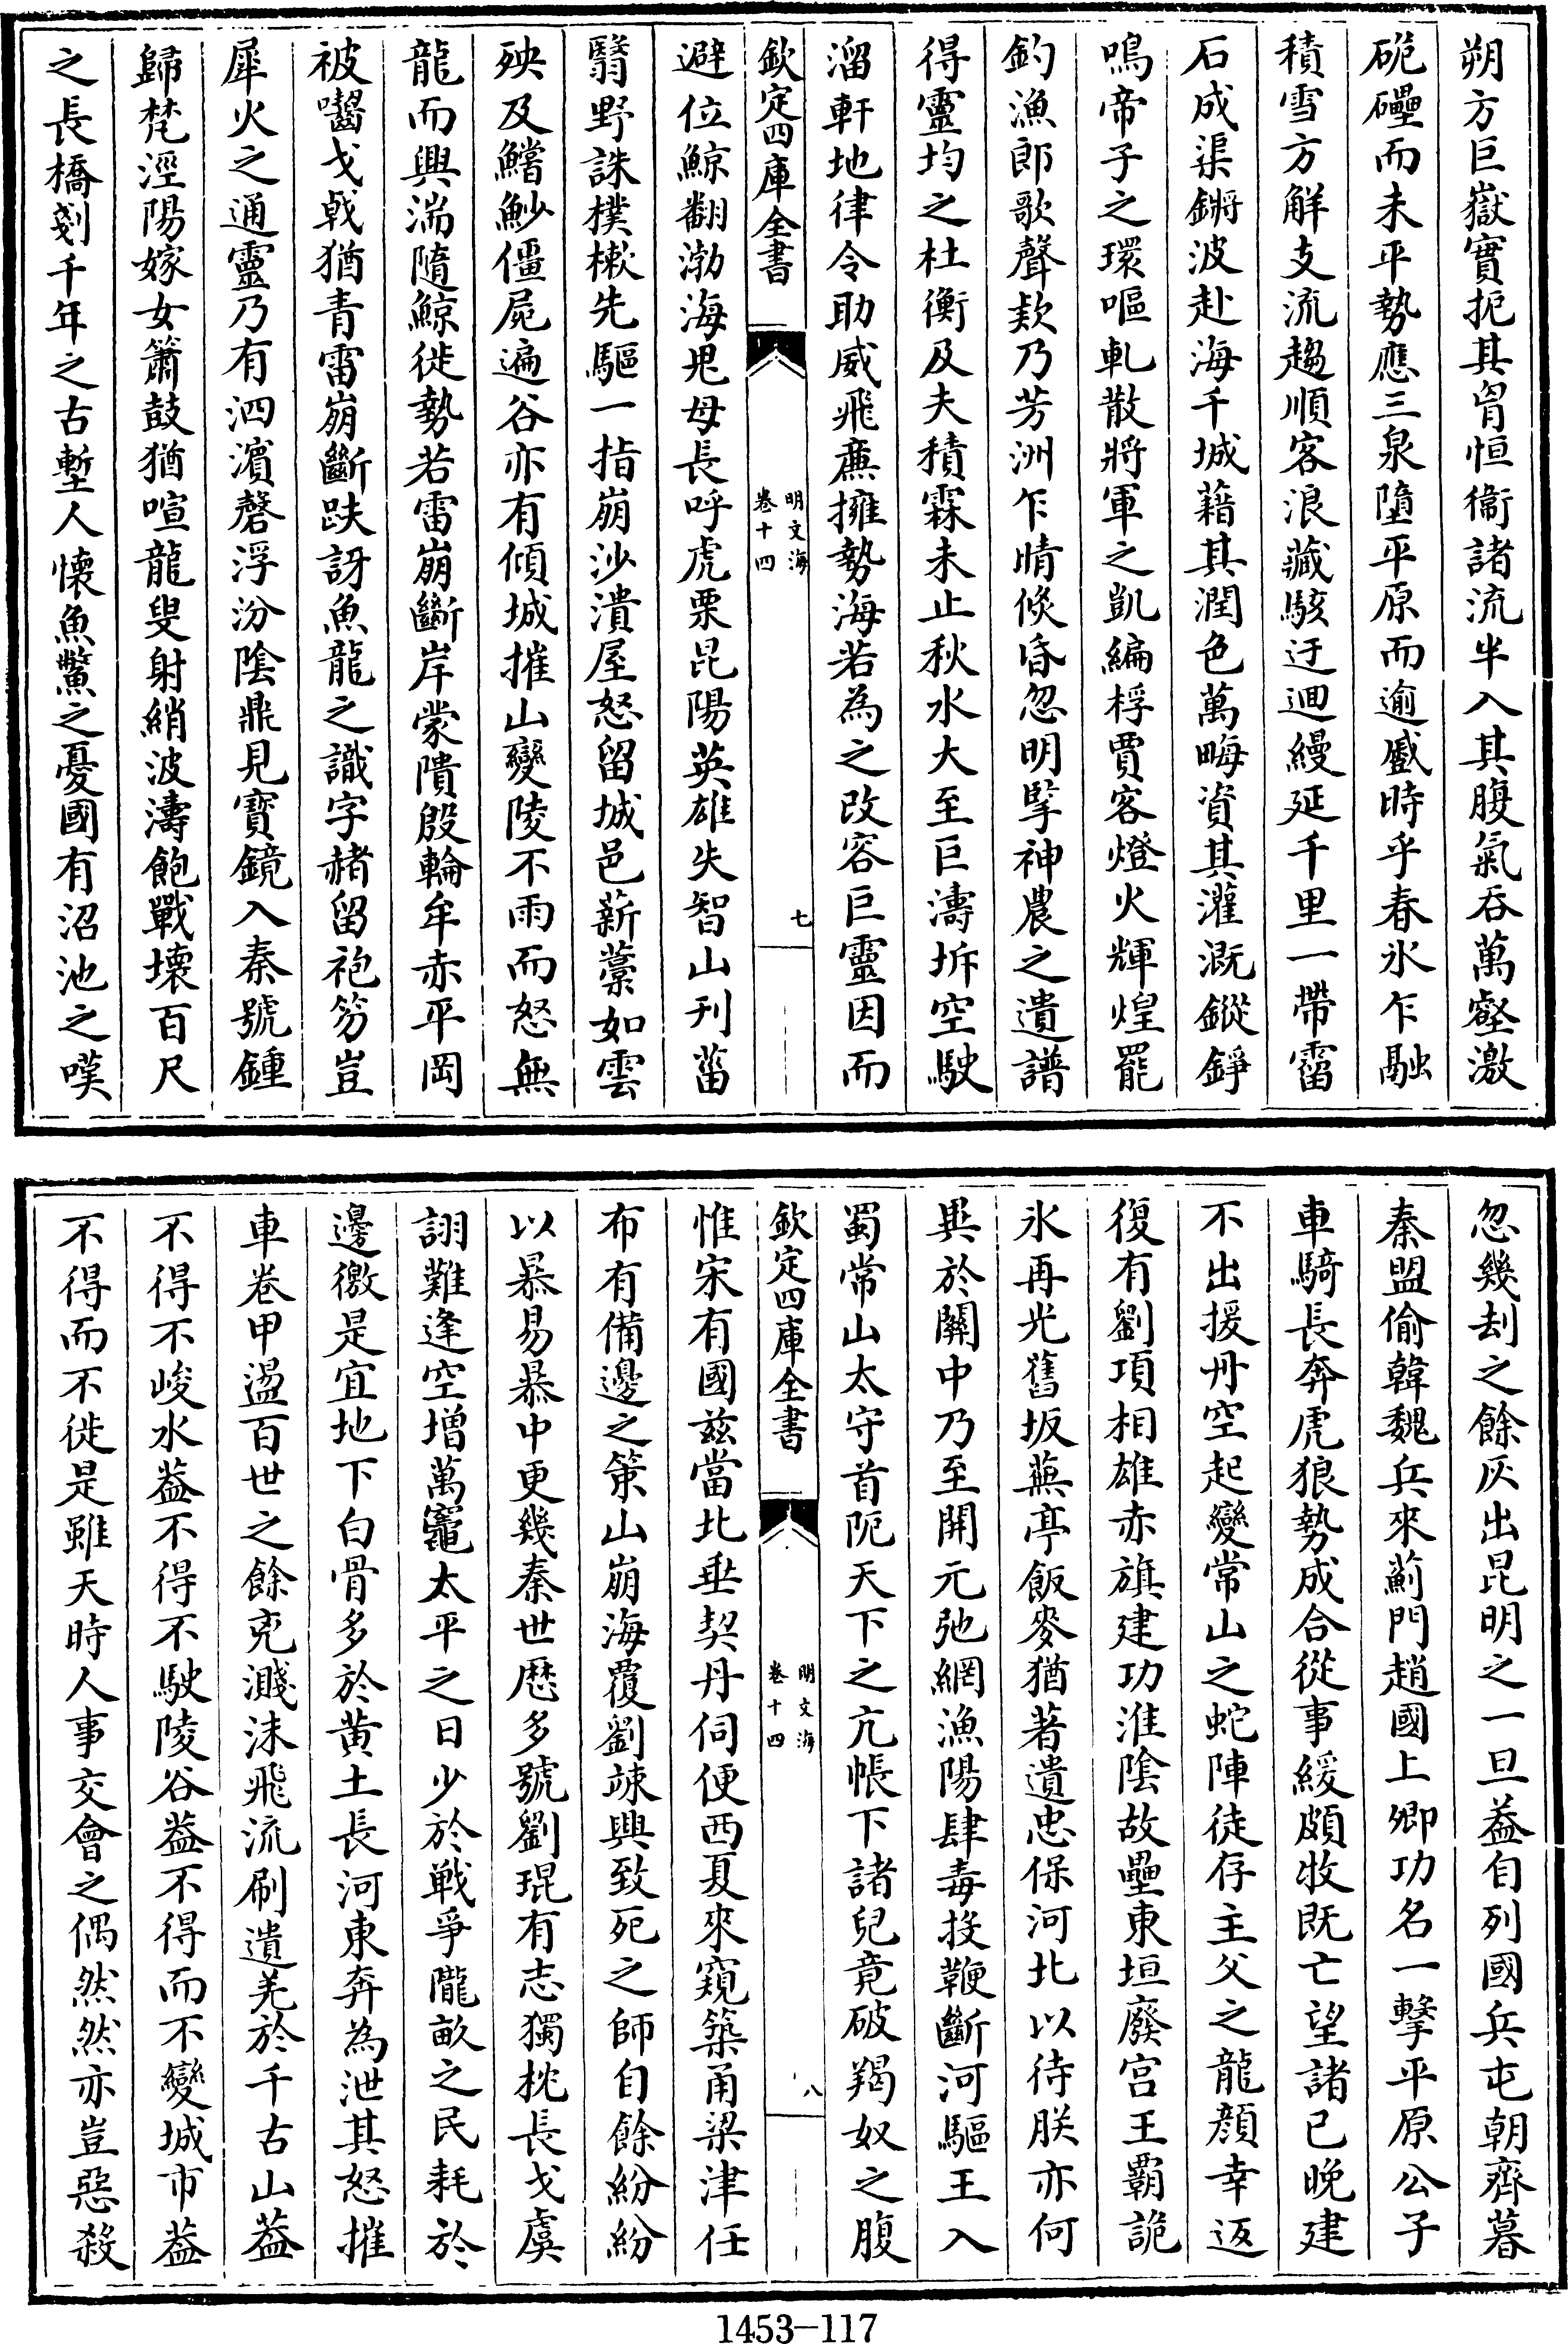 朔方巨嶽實扼其胷恒衞諸流半入其腹氣吞萬壑激
硊礧而未平勢應三泉墮平原而逾蹙時乎春氷乍融
積雪方解支流趨順客浪藏駭迂迴縵延千里一帶霤
石成渠鏘波赴海千城藉其潤色萬畮資其灌漑鏦錚
鳴帝子之環嘔軋散將軍之凱編桴賈客燈火輝煌罷
釣漁郎歌聲欵乃芳洲乍晴倐昏忽明擥神農之遺譜
得靈均之杜衡及夫積霖未止秋水大至巨濤坼空駛
溜軒地律令助威飛亷擁勢海若為之改容巨靈因而
欽定四庫全書
明文海
卷十四
七
避位鯨翻渤海鬼母長呼虎栗昆陽英雄失智山刋菑
翳野誅樸樕先驅一指崩沙潰屋怒留城邑薪藁如雲
殃及鱨魦僵屍遍谷亦有傾城摧山變陵不雨而怒無
龍而興湍隨鯨徙勢若雷崩斷岸蒙隤殷輪牟赤平岡
被囓戈戟猶青雷崩斷趺訝魚龍之識字赭留袍笏豈
犀火之通靈乃有泗濱磬浮汾陰鼎見寳鏡入秦號鍾
歸梵涇陽嫁女簫鼓猶喧龍叟射綃波濤飽戰壊百尺
之長橋剗千年之古塹人懷魚鱉之憂國有沼池之嘆
忽幾刦之餘灰出昆明之一旦葢自列國兵屯朝齊暮
秦盟偷韓魏兵來薊門趙國上卿功名一擊平原公子
車騎長奔虎狼勢成合從事緩頗牧既亡望諸已晚建
不出援丹空起變常山之蛇陣徒存主父之龍顔幸返
復有劉項相雄赤旗建功淮陰故壘東垣廢宫王霸詭
氷再光舊坂蕪亭飯麥猶著遺忠保河北以待朕亦何
異於關中乃至開元弛網漁陽肆毒投鞭斷河驅王入
蜀常山太守首阨天下之亢帳下諸兒竟破羯奴之腹
欽定四庫全書
明文海
卷十四
八
惟宋有國兹當北垂契丹伺便西夏來窺築甬梁津任
布有備邊之策山崩海覆劉竦興致死之師自餘紛紛
以暴易暴中更幾秦世厯多號劉琨有志獨枕長戈虞
詡難逢空增萬竈太平之日少於戰爭隴畝之民耗於
邊徼是宜地下白骨多於黄土長河東奔為泄其怒摧
車卷甲盪百世之餘兇濺沫飛流刷遺羌於千古山葢
不得不峻水葢不得不駛陵谷葢不得而不變城市葢
不得而不徙是雖天時人事交會之偶然然亦豈惡殺
1453—117